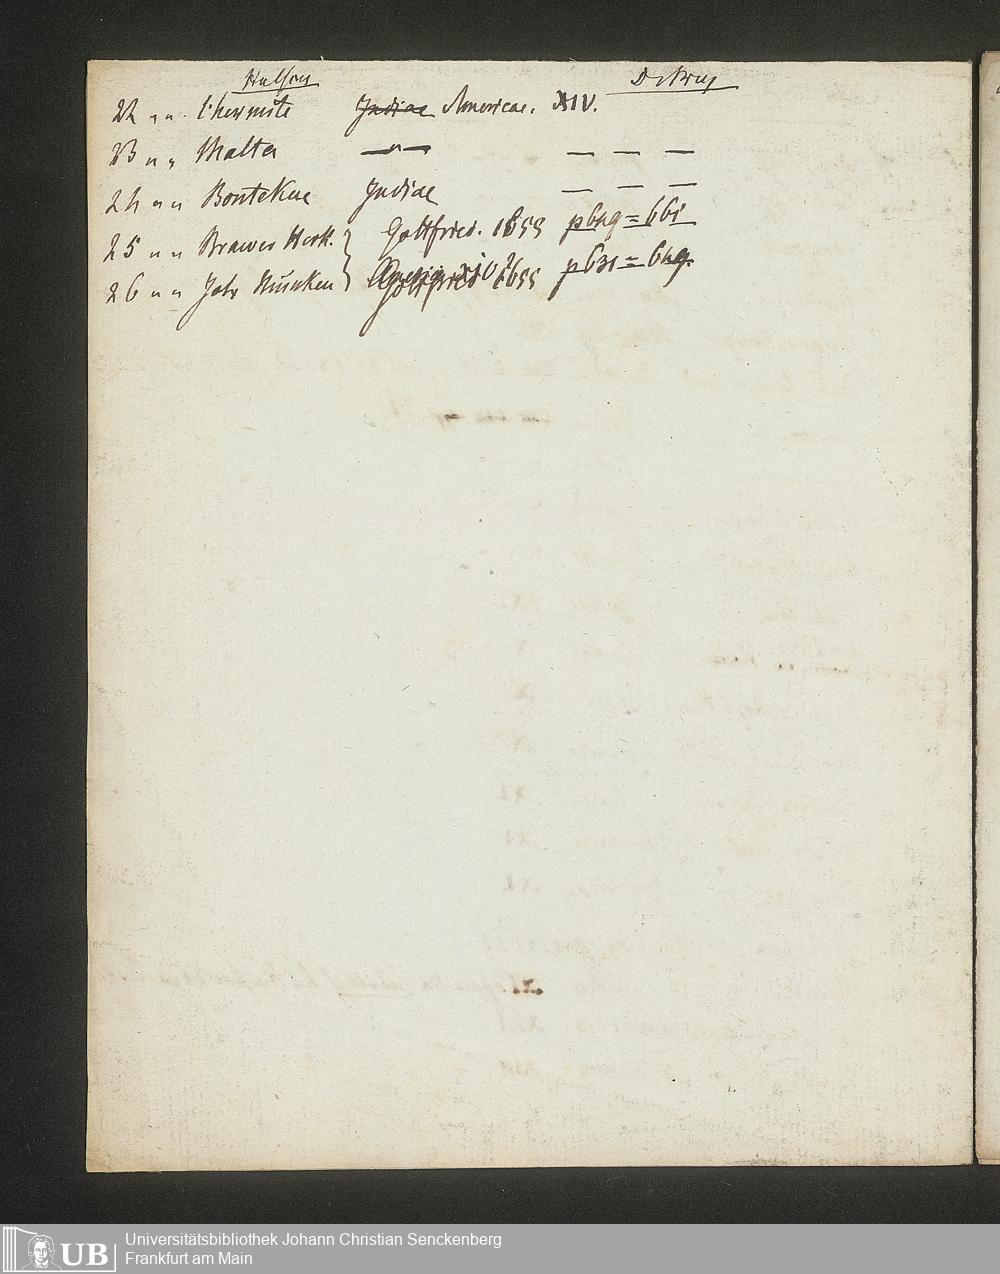 Hulsius De Bry
22 " " l'hermite Indiae Americae. XIV.
23 " " Malta — " — — — —
24 " " BonteKue Indiae — — —
25 " " Brawer Herk. } Gottfried. 1655 p649=661
26 " " Joh } Gottfried 1655 p631=649.
UB
Universitätsbibliothek Johann Christian Senckenberg
Frankfurt am Main